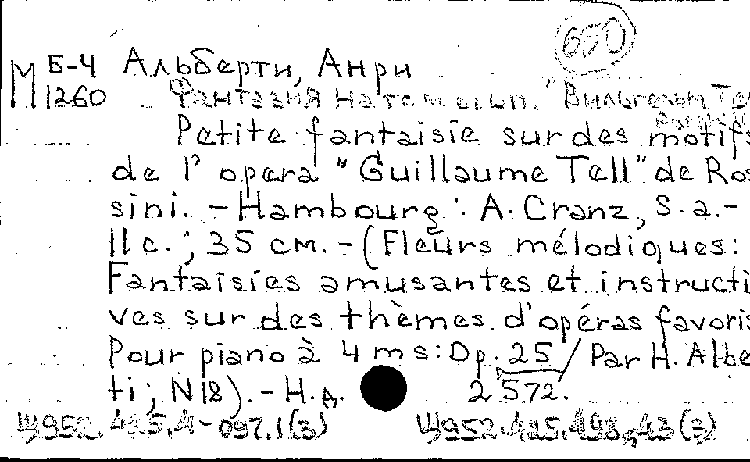 650
М Б-4 Альберти, Анри
1260 Фантазия на темы оп. "Вильгельм Те
Petite fantaisie sur des motifs
de l'opera "Guillaume Tell" de Ros
sini. - Hambourg: A. Cranz, s. a. -
11 c.; 35 см. - (Fleurs mélodiques:
Fantaisies amusantes et instructi
ves sur des thèmes d'opéras favoris
Pour piano à 4 ms: Op. 25 / Par H. Albe
ti; N 18). - Н.д. 2572.